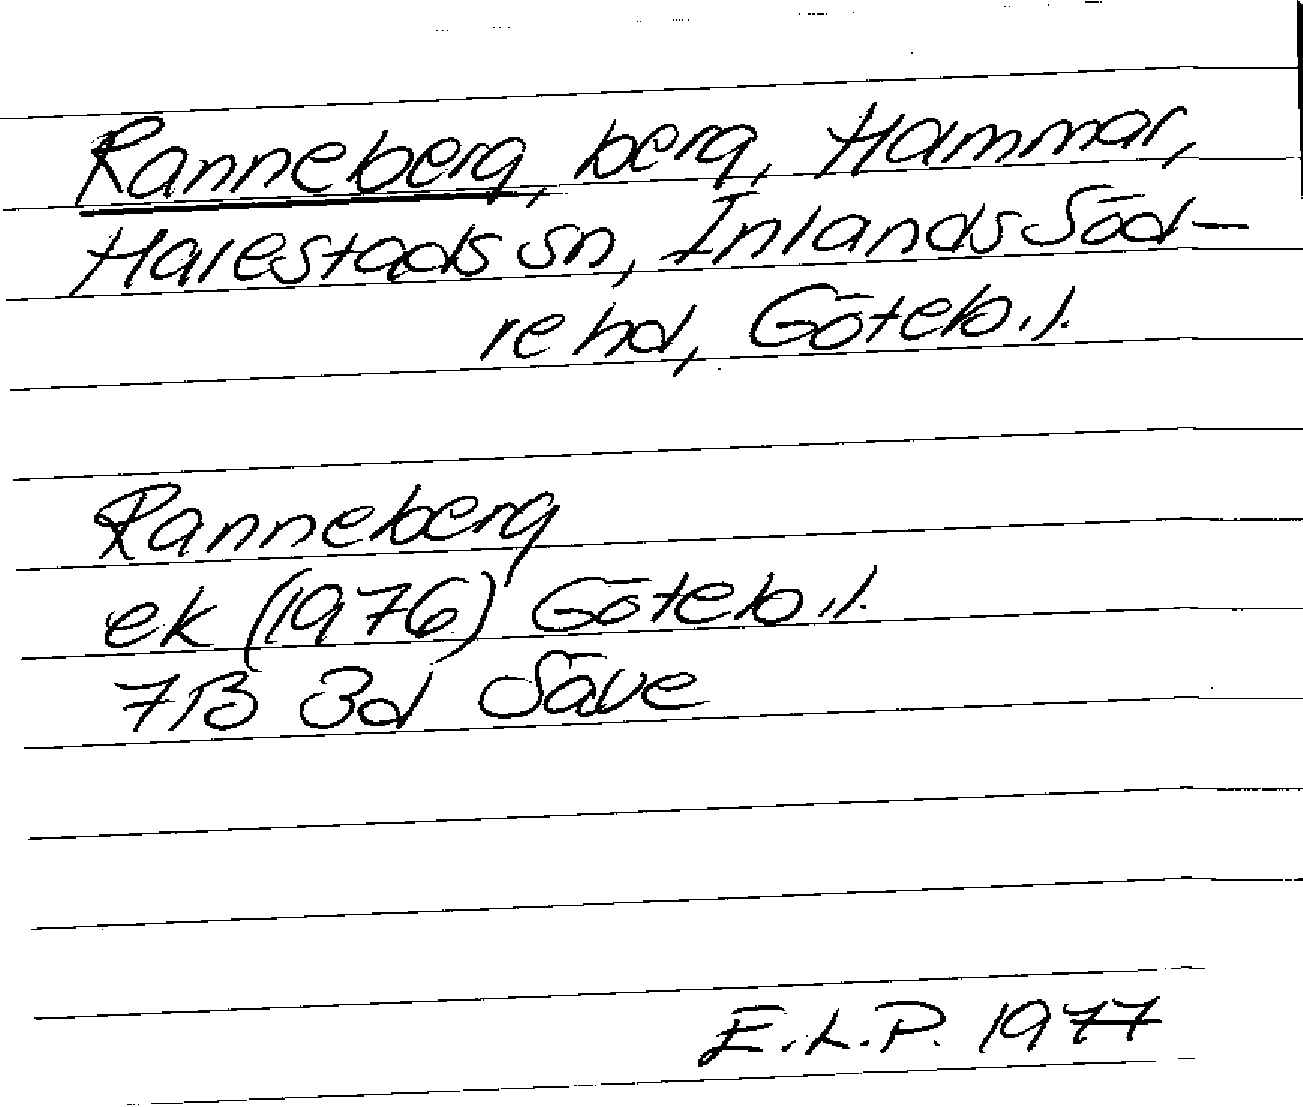 Ranneberg, berg, Hammar,
Harestads sn, Inlands Söd-
re hd, Göteb.l.
Ranneberg
ek (1976) Göteb.l.
7B 3d Säve
E.L.P. 1977